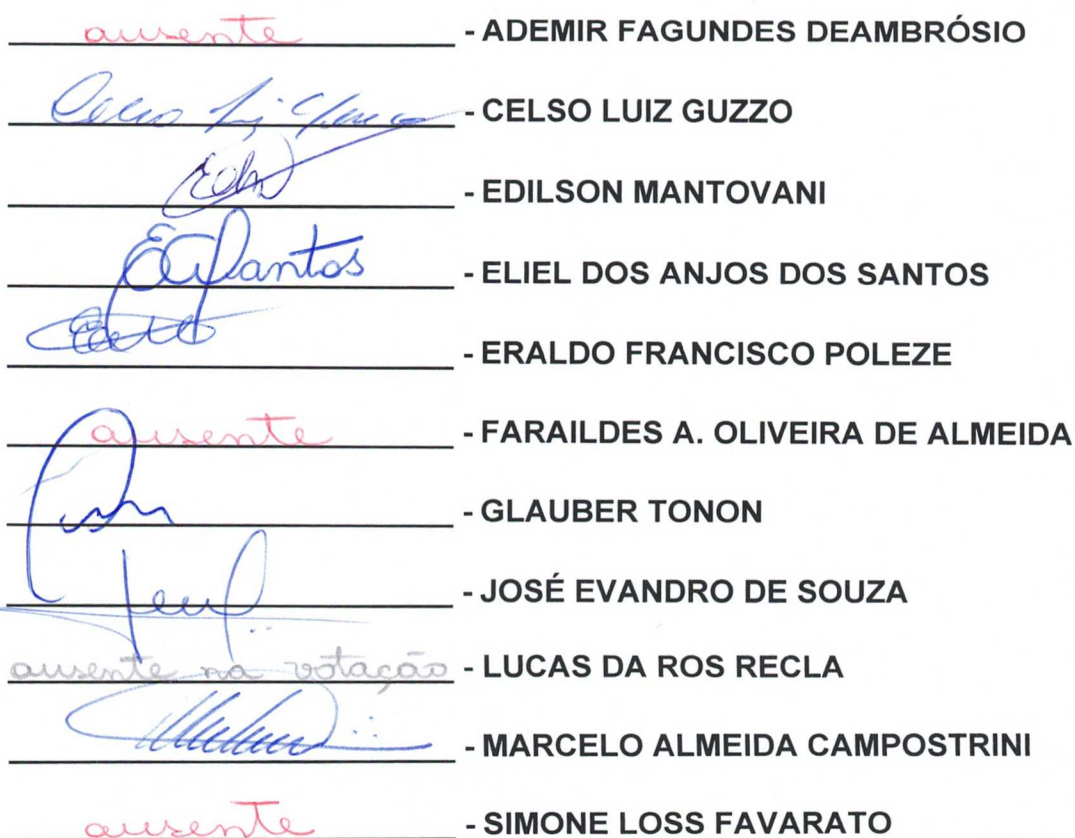 ausente - ADEMIR FAGUNDES DEAMBRÓSIO
Celso Luiz - CELSO LUIZ GUZZO
- EDILSON MANTOVANI
EASantos - ELIEL DOS ANJOS DOS SANTOS
- ERALDO FRANCISCO POLEZE
ausente - FARAILDES A. OLIVEIRA DE ALMEIDA
- GLAUBER TONON
- JOSÉ EVANDRO DE SOUZA
ausente na votação - LUCAS DA ROS RECLA
- MARCELO ALMEIDA CAMPOSTRINI
ausente - SIMONE LOSS FAVARATO